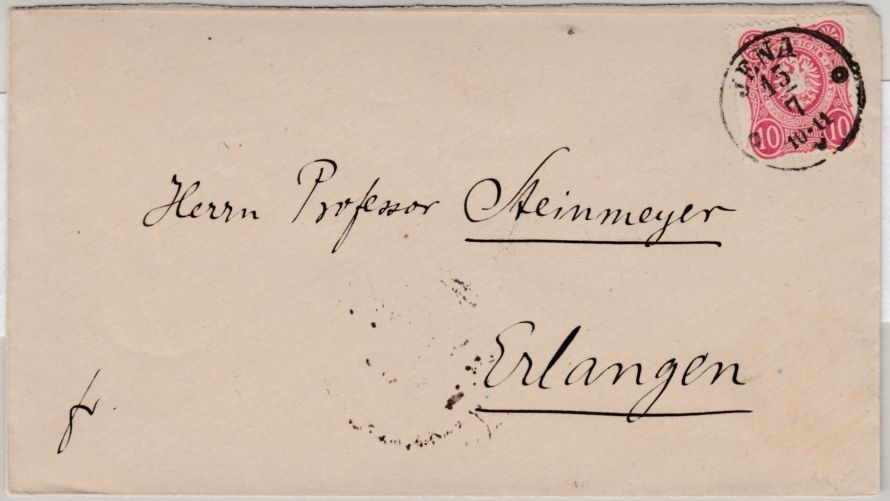 JENA
15/7
10-11
10 10
Herrn Professor Steinmeyer
Erlangen
fr.